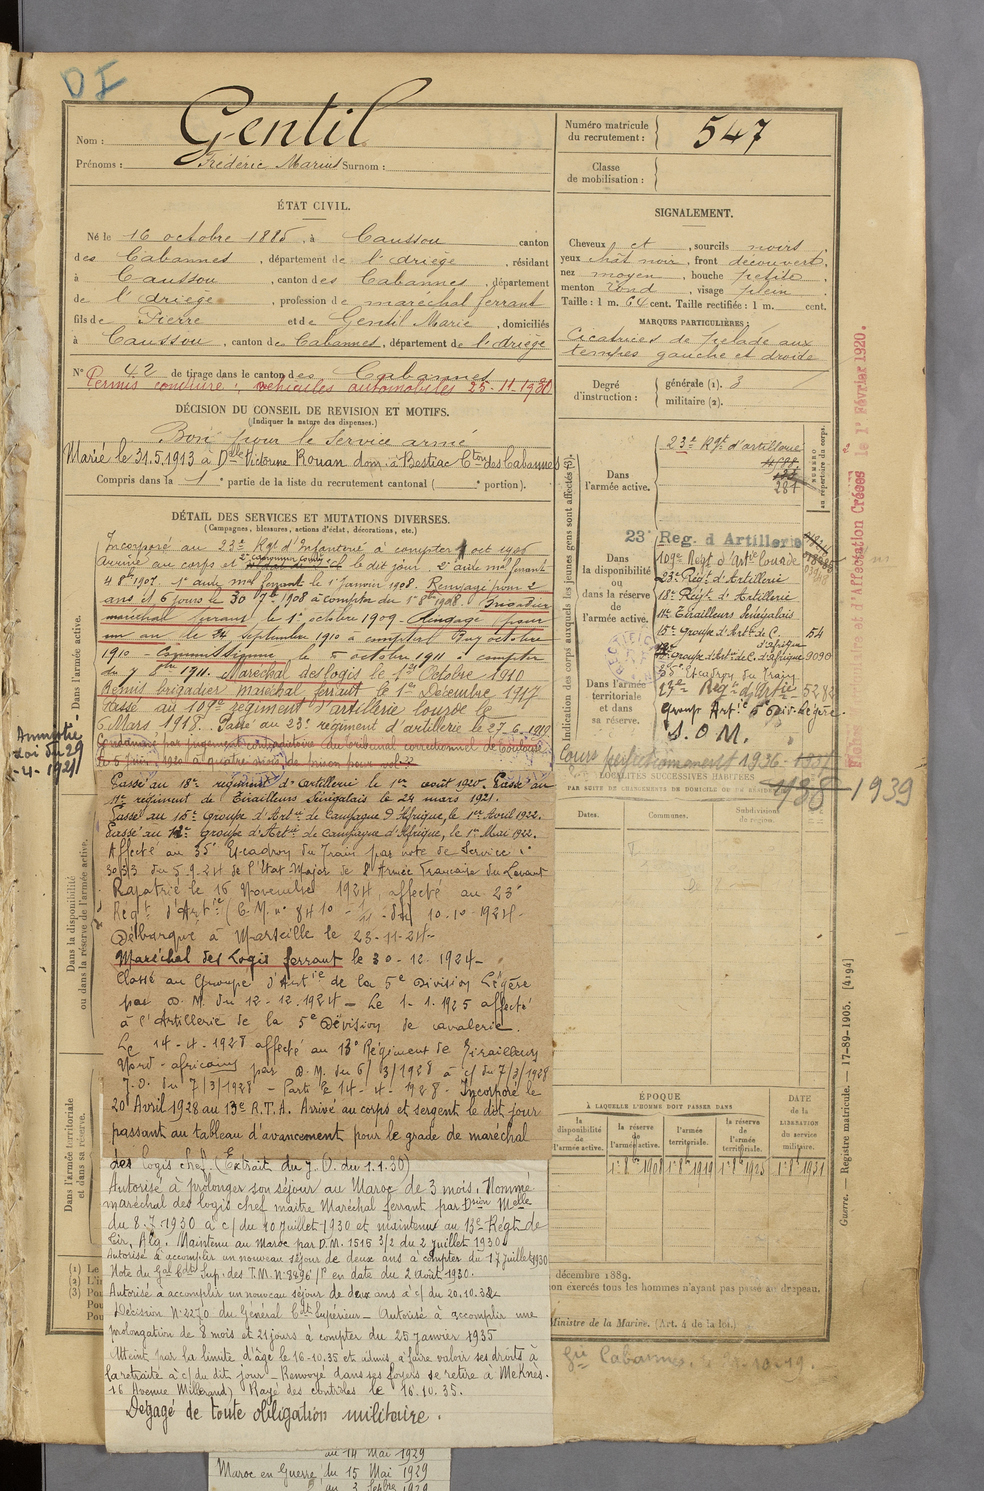 DI
Nom : Gentil
Prénoms : Frédéric Marius Surnom :
Numéro matricule du recrutement : 547
Classe de mobilisation :
ÉTAT CIVIL.
Né le 16 octobre 1885, à Caussou canton
des Cabannes, département de l'Ariège, résidant
à Caussou, canton des Cabannes, département
de l'Ariège, profession de maréchal ferrant
fils de Pierre et de Gentil Marie, domiciliés
à Caussou, canton des Cabannes, département de l'Ariège
N° 42 de tirage dans le canton des Cabannes
Permis conduire : véhicules automobiles 25-11-1930
SIGNALEMENT.
Cheveux et, sourcils noirs
yeux chât noir, front découvert,
nez moyen, bouche petite
menton rond, visage plein
Taille : 1 m. 64 cent. Taille rectifiée : 1 m. cent.
MARQUES PARTICULIÈRES :
Cicatrices de pelade aux
tempes gauche et droite
Degré d'instruction : générale (1). 3
militaire (2).
DÉCISION DU CONSEIL DE REVISION ET MOTIFS.
(Indiquer la nature des dispenses.)
Bon pour le service armé
Marié le 31.5.1913 à Dlle Victorine Rouan dom. à Bestiac Cton des Cabannes
Compris dans la 1e partie de la liste du recrutement cantonal ( portion).
DÉTAIL DES SERVICES ET MUTATIONS DIVERSES.
(Campagnes, blessures, actions d'éclat, décorations, etc.)
Incorporé au 23e Rgt d'Infanterie à compter 1 oct 1906
Arrivé au corps et 2e canonnier cond. le dit jour 2e aide mal ferrant
4 8bre 1907. 1er aide mal ferrant le 1er Janvier 1908. Rengagé pour 2
ans et 6 jours le 30 7bre 1908 à compter du 1er 8bre 1908. Brigadier
maréchal ferrant le 1er octobre 1909. Rengagé pour
un an le 24 septembre 1910 à compter
1910 - Commissionné le 5 octobre 1911 à compter
du 7 8bre 1911. Maréchal des Logis le 1er Octobre 1910
Remis brigadier maréchal ferrant le 1er Décembre 1917
Passé au 109e régiment d'artillerie lourde le
6 Mars 1918. Passé au 23e régiment d'artillerie le 27-6-1919
Condamné par jugement contradictoire du tribunal correctionnel de Toulouse
le 5 juin 1920 à quatre mois de prison pour vol
Amnistié
Loi du 29
-4-1921
Passé au 18e régiment d'artillerie le 1er août 1920. Passé au
11e régiment de Tirailleurs Sénégalais le 24 mars 1921.
Passé au 15e Groupe d'Artie de Campagne d'Afrique, le 1er Avril 1922.
Passé au Groupe d'Artie de Campagne d'Afrique, le 1er Mai 1922.
Affecté au 35e Escadron du Train par note de Service n°
3033/3 du 5-9-24 de l'Etat Major de l'Armée Française du Levant
Rapatrié le 16 Novembre 1924, affecté au 23e
Régt d'Artie (C.M. n° 8410 - 10-10-1924.
Débarqué à Marseille le 23-11-24
Maréchal des Logis ferrant le 30-12-1924-
Classé au Groupe d'Artie de la 5e Division Légère
par D.M. du 12-12-1924 - Le 1-1-1925 affecté
à l'Artillerie de la 5e Division de cavalerie.
Le 14-4-1928 affecté au 13e Régiment de Tirailleurs
Nord-africains par D.M. du 6/3/1928 à c/ du 7/3/1928
J.O. du 7/3/1928 - Parti le 14-4-1928 - Incorporé le
20 Avril 1928 au 13e R.T.A. Arrivé au corps et sergent le dit jour
passant au tableau d'avancement pour le grade de maréchal
des logis chef. (Extrait du J.O. du 1.1.30)
Autorisé à prolonger son séjour au Maroc de 3 mois. Nommé
maréchal des logis chef maître Maréchal ferrant par Dsion Melle
du 8.7.1930 à c/ du 10 juillet 1930 et maintenu au 13e Régt de
Tir. Alg. Maintenu au Maroc par D.M. 1515 3/2 du 2 juillet 1930
Autorisé à accomplir un nouveau séjour de deux ans à compter du 17 juillet 1930
Note du Gal Cdt Sup. des T.M. N° 8896/P en date du 2 Août 1930.
Autorisé à accomplir un nouveau séjour de deux ans à c/ du 20.10.32
Décision N° 2270 du Général Cdt Supérieur - Autorisé à accomplir une
prolongation de 8 mois et 21 jours à compter du 25 janvier 1935
Atteint par la limite d'âge le 16-10.35 et admis à faire valoir ses droits à
la retraite à c/ du dit jour - Renvoyé dans ses foyers se retire à Meknès.
16 Avenue Millerand) Rayé des contrôles le 16.10.35.
Dégagé de toute obligation militaire.
au 14 Mai 1929
Maroc en Guerre, du 15 Mai 1929
au 3 Septbre 1929
Dans la disponibilité ou dans la réserve de l'armée active.
Dans l'armée territoriale et dans sa réserve.
Indication des corps auxquels les jeunes gens sont affectés
NUMÉRO au répertoire du corps.
Dans l'armée active.
23e Rgt d'artillerie
281
Dans la disponibilité ou dans la réserve de l'armée active.
23e Reg. d'Artillerie
109e Régt d'Artie Lourde
23e Régt d'Artillerie
18e Régt d'Artillerie
11e Tirailleurs Sénégalais
15e Groupe d'Art. de C. d'Afrique 54
Groupe d'Art. de C. d'Afrique 9090
Dans l'armée territoriale et dans sa réserve.
35e Escadron du Train
23e Regt d'Artie 5282
Groupe Artie 5e Div. Légère.
S.O.M.
RECTIFIÉ
Cours perfectionnement 1936-1937
1938-1939
LOCALITÉS SUCCESSIVES HABITÉES
PAR SUITE DE CHANGEMENTS DE DOMICILE OU DE RÉSIDENCE
Dates. Communes. Subdivisions de région.
ÉPOQUE
À LAQUELLE L'HOMME DOIT PASSER DANS
DATE de la LIBÉRATION du service militaire.
la disponibilité de l'armée active.
la réserve de l'armée active.
l'armée territoriale.
la réserve de l'armée territoriale.
1er 8bre 1908 1er 8bre 1919 1er 8bre 1925 1er 8bre 1931
(1) Le
(2) L'in
(3) Pour
Pou
Pou
décembre 1889.
non exercés tous les hommes n'ayant pas passé au drapeau.
Ministre de la Marine. (Art. 4 de la loi.)
Cabannes.
et d'Affectation Créées le 1er Février 1920.
Guerre. — Registre matricule. — 17-89-1905. [4194]